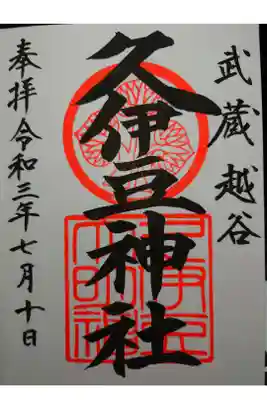 武蔵越谷
久伊豆神社
奉拝令和三年七月十日